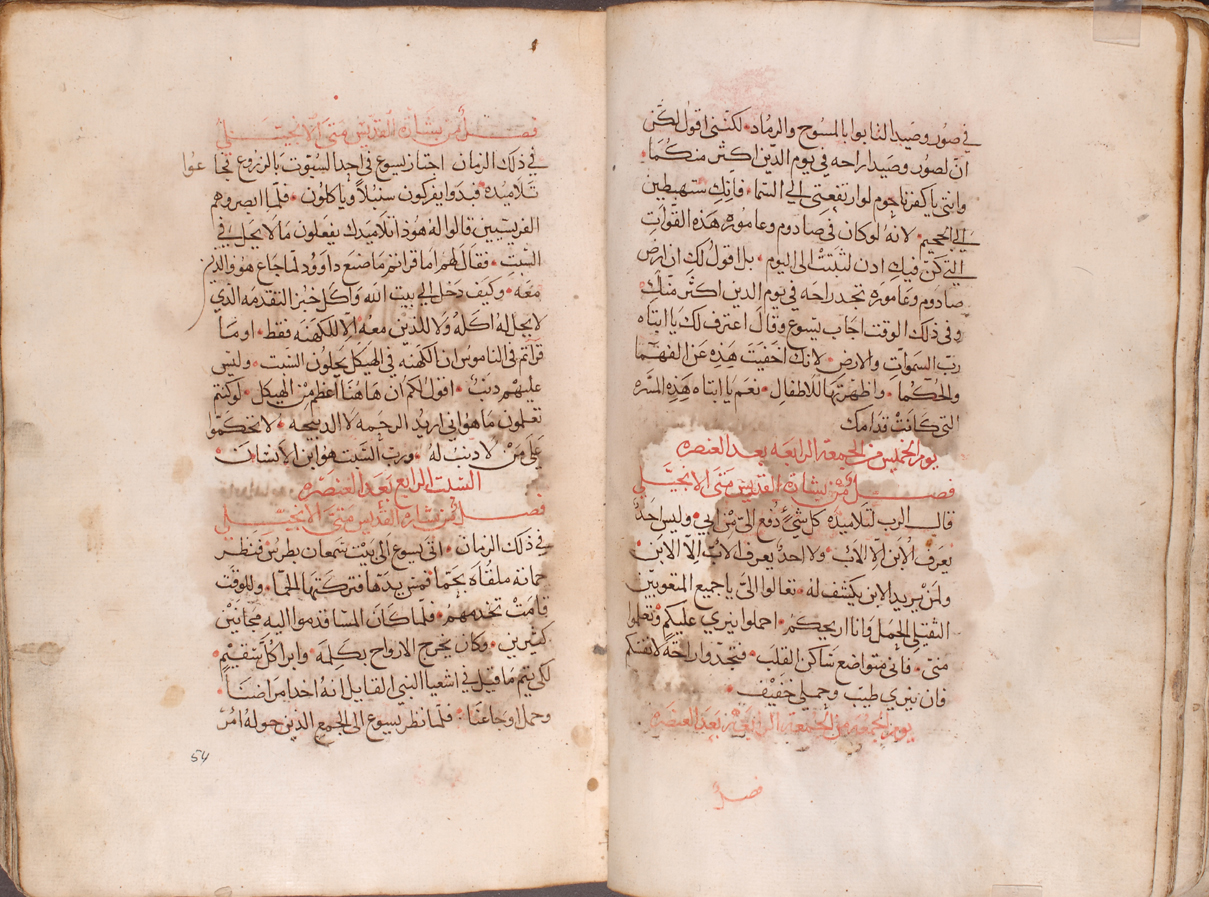 في صور وصيدا لتابوا بالمسوح والرماد. لكنني اقول لكن
انّ لصور وصيدا راحه في يوم الدين اكثر منكما.
وانتي يا كفرناحوم لو ارتفعتي الي السما. فانك ستهبطين
الي الجحيم. لانهُ لو كان في صادوم وعاموره هذه القوات
التي كن فيك اذن لثبتت الى اليوم. بل اقول لك ان ارض
صادوم وعاموره تجد راحه في يوم الدين اكثر منك
وفي ذلك الوقت اجاب يسوع وقال اعترف لك يا ابتاه
ربّ السموات والارض. لانك اخفيت هذه عن الفهما
والحكما. واظهرتها للاطفال. نعم يا ابتاه هذه المسره
التي كانت قدامك
يوم الخميس من الجمعة الرابعه بعد العنصره
فصل من بشارة القديس متى الانجيلي
قال الرب لتلاميذه كل شيء دفع اليّ من ابي. وليس احدٌ
يعرف الابن الّا الاب. ولا احدٌ يعرف الاب الا الابن
ولمن يريد الابن يكشف له. تعالوا اليّ يا جميع المتعوبين
الثقيلي الحمل وانا اريحكم. احملوا نيري عليكم وتعلموا
منيّ. فاني متواضع ساكن القلب. فتجدوا راحة لانفسكم
فان نيري طيب وحملي خفيف.
يوم الجمعه من الجمعة الرابعة بعد العنصره
فصل
فصل من بشارة القديس متى الانجيلي
في ذلك الزمان اجتاز يسوع في احد السبوت بالزروع فجاعوا
تلاميذه فبدوا يفركون سنبلًا وياكلون. فلمّا ابصروهم
الفريسيين قالوا له هوذا تلاميذك يفعلون ما لا يحل في
السبت. فقال لهم اما قراتم ما صنع داوود لما جاع هو والذين
معه. وكيف دخل الي بيت الله واكل خبز التقدمه الذي
لا يحل له اكله ولا للذين معه الّا للكهنه فقط. اوما
قراتم في الناموس ان الكهنه في الهيكل يحلون السبت. وليس
عليهم ذنب. اقول لكم انّ هاهنا اعظم من الهيكل. لو كنتم
تعلمون ما هو اني اريد الرحمه لا الذبيحه. لا تحكموا
على من لا ذنب له. ورب السبت هو ابن الانسان
السبت الرابع بعد العنصره
فصل من بشارة القديس متى الانجيلي
في ذلك الزمان. اتى يسوع الى بيت سمعان بطرس فنظر
حماته ملقاه بحمّا فمس يدها فتركتها الحمّا. وللوقت
قامت تخدمهم. فلما كان المسا قدموا اليه مجانين
كثيرين. وكان يخرج الارواح بكلمه. وابرا كل سقيم
لكي يتم ما قيل في اشعيا النبي القايل انه اخذ امراضنا.
وحمل اوجاعنا: فلما نظر يسوع الى الجمع الذين حوله امر
54